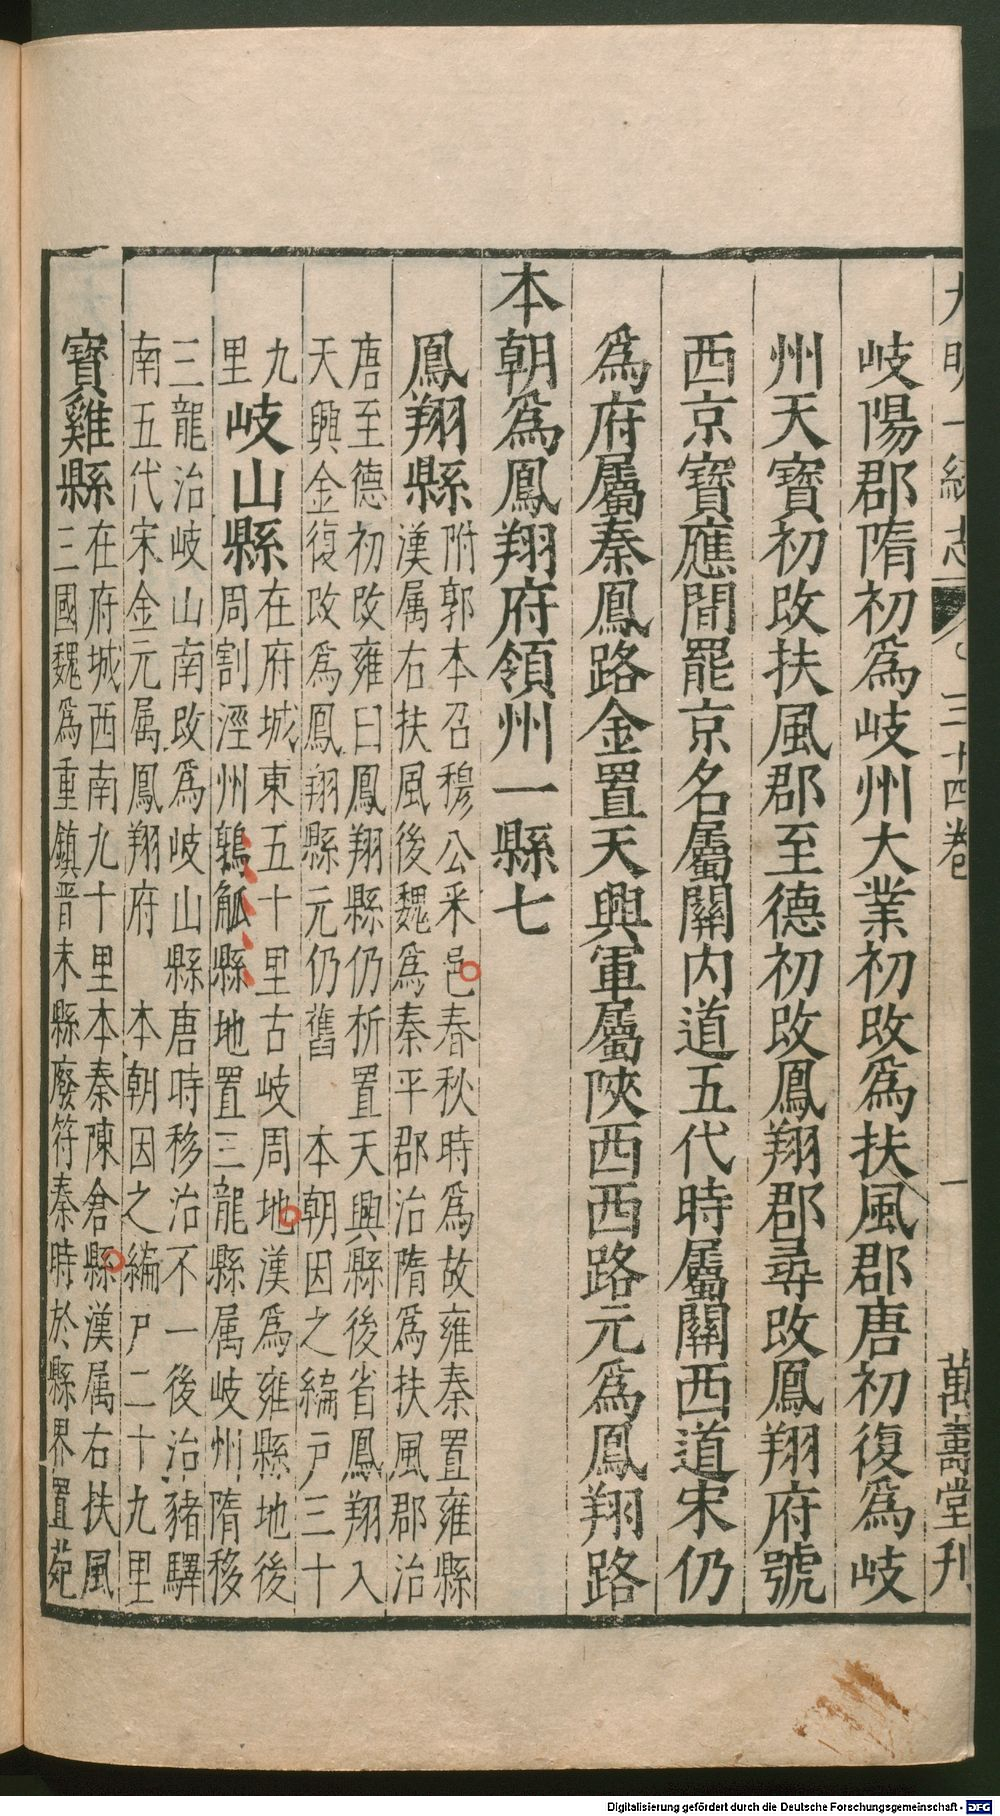 大明一統志 三十四卷 一 萬壽堂刊
岐陽郡隋初爲岐州大業初改爲扶風郡唐初復爲岐
州天寶初改扶風郡至德初改鳳翔郡尋改鳳翔府號
西京寶應間罷京名屬關內道五代時屬關西道宋仍
爲府屬秦鳳路金置天興軍屬陝西西路元爲鳳翔路
本朝爲鳳翔府領州一縣七
鳳翔縣
附郭本召穆公釆邑春秋時爲故雍秦置雍縣
漢属右扶風後魏爲秦平郡治隋爲扶風郡治
唐至德初改雍曰鳳翔縣仍析置天興縣後省鳳翔入
天興金復改爲鳳翔縣元仍舊 本朝因之編户三十
九
里
岐山縣
在府城東五十里古岐周地漢爲雍縣地後
周割涇州鶉觚縣地置三龍縣属岐州隋移
三龍治岐山南改爲岐山縣唐時移治不一後治豬驛
南五代宋金元属鳳翔府 本朝因之編户二十九里
寶雞縣
在府城西南九十里本秦陳倉縣漢属右扶風
三國魏爲重鎮晋末縣廢符秦時於縣界置苑
Digitalisierung gefördert durch die Deutsche Forschungsgemeinschaft - DFG